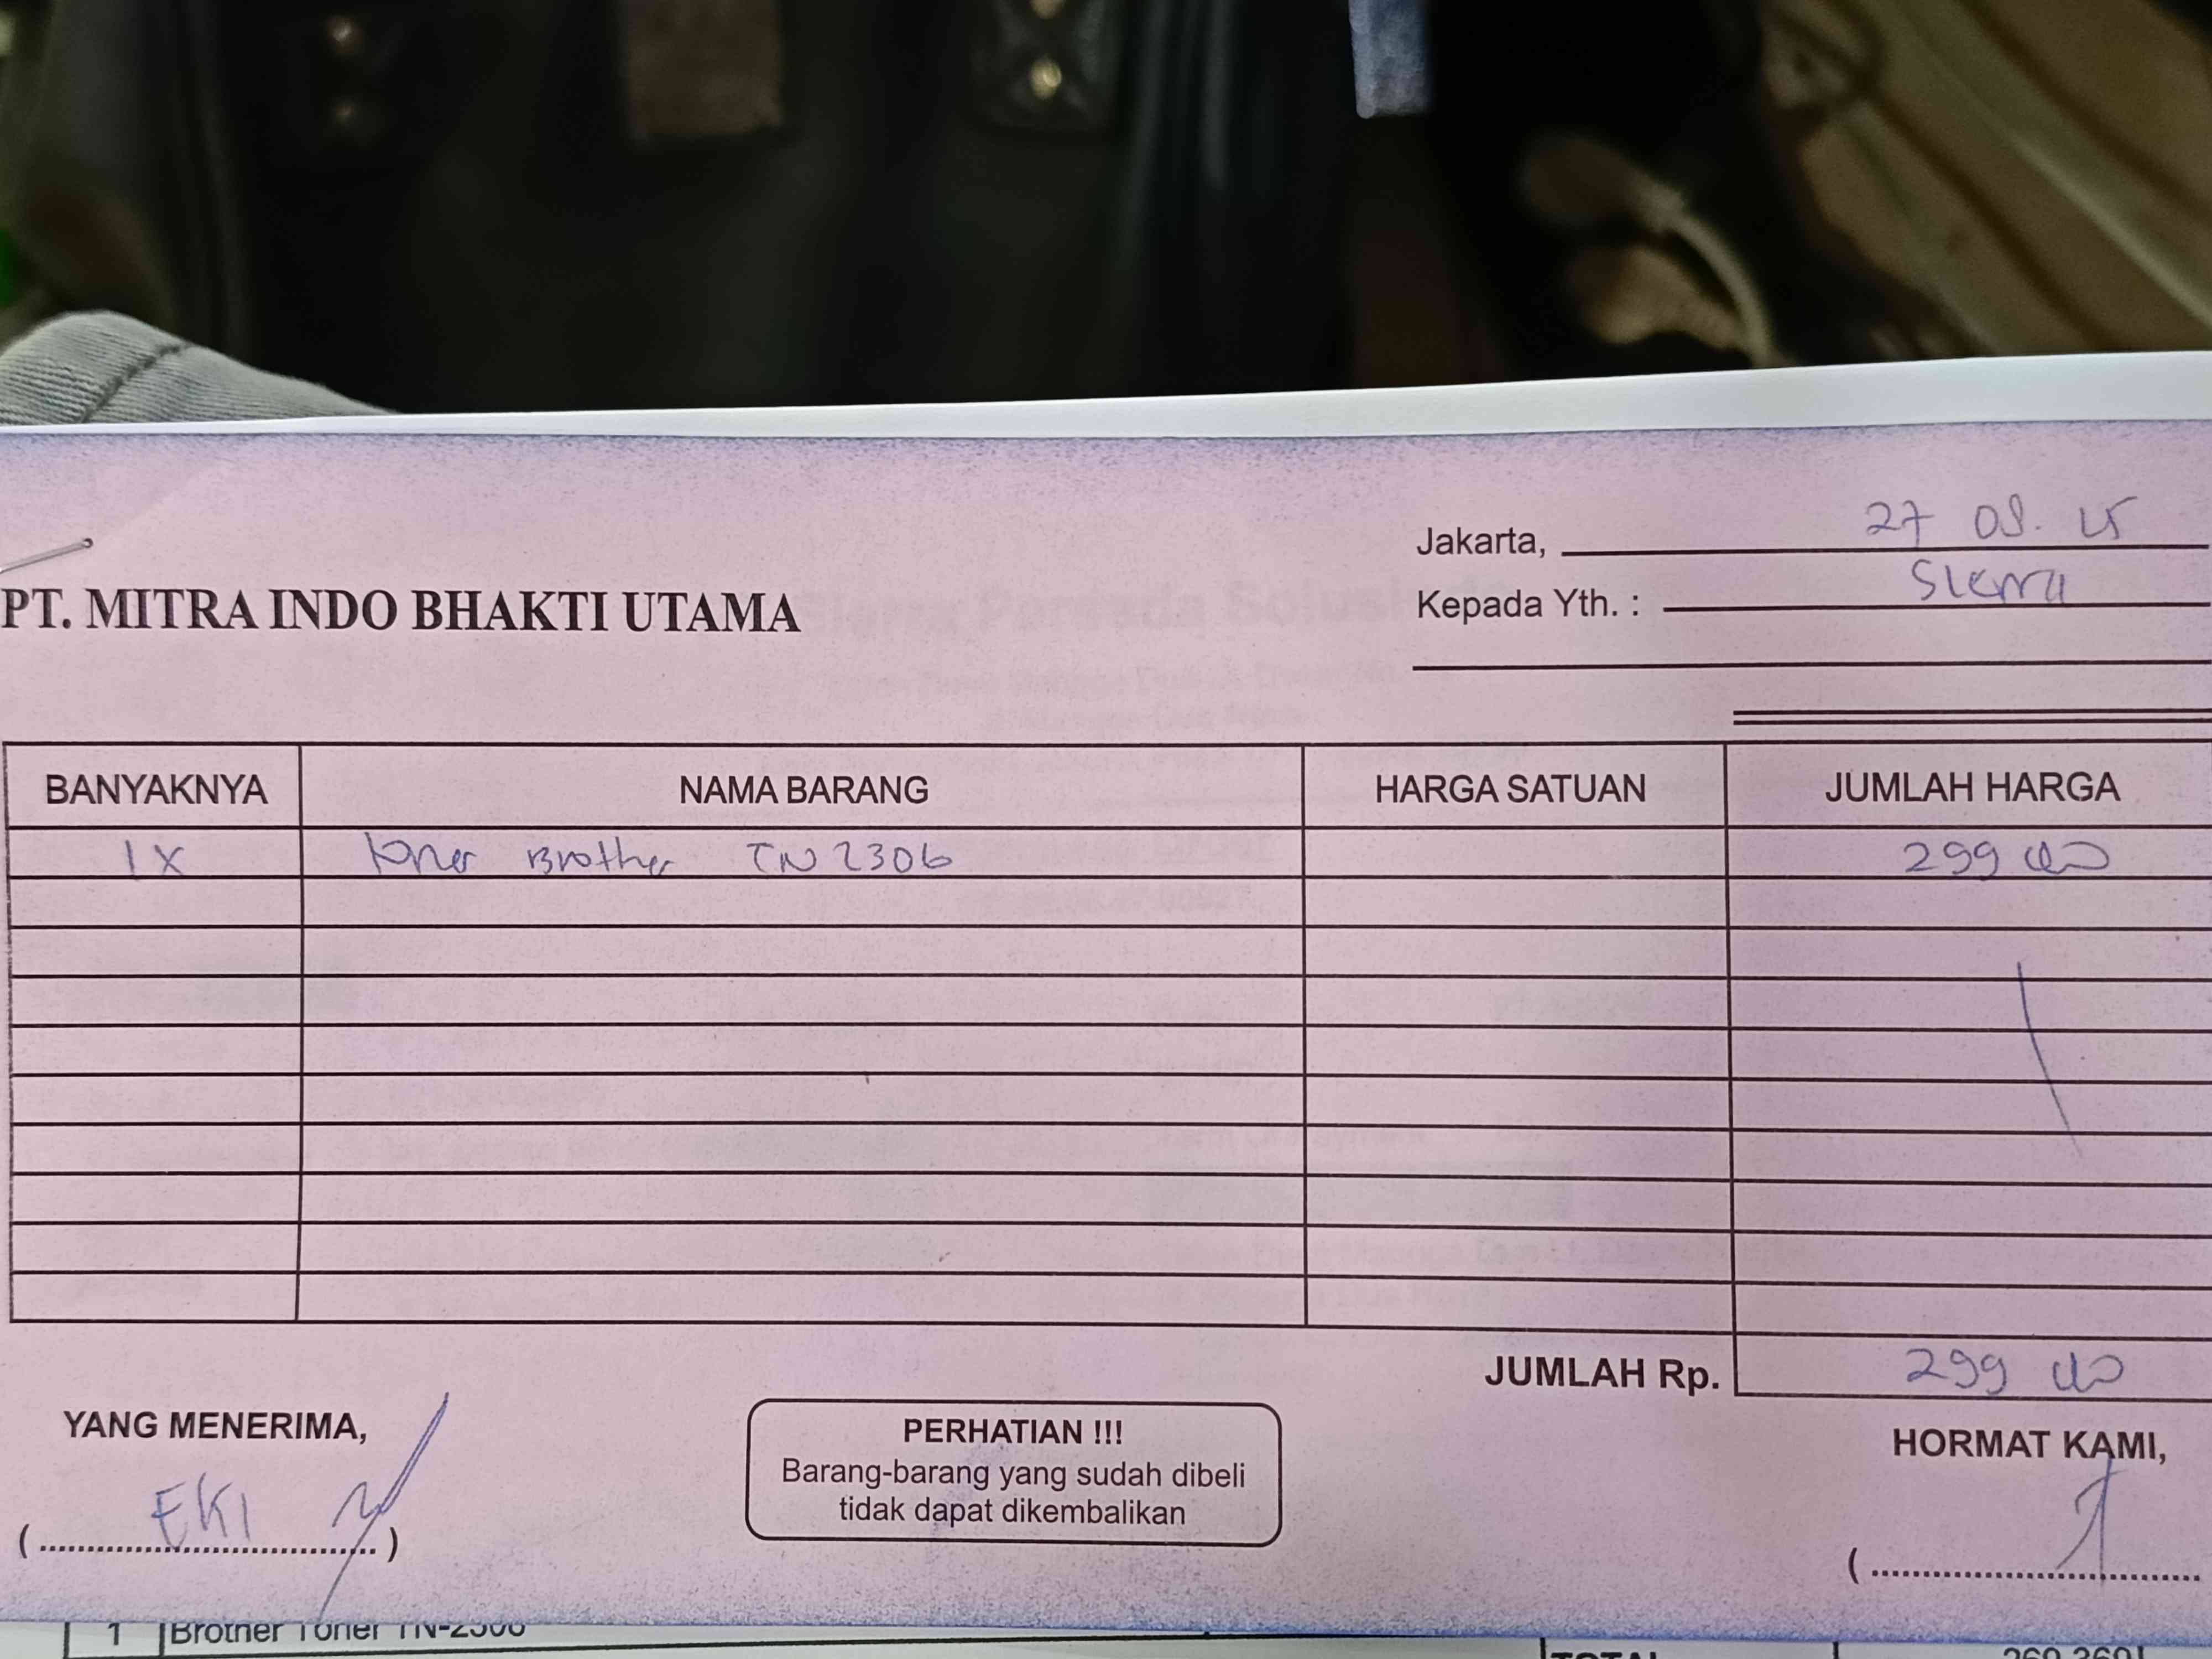 Jakarta, 27 08. 25
Kepada Yth. : Sierra
PT. MITRA INDO BHAKTI UTAMA
BANYAKNYA NAMA BARANG HARGA SATUAN JUMLAH HARGA
1 X Toner Brother TN 2306 299
JUMLAH Rp. 299
YANG MENERIMA,
PERHATIAN !!!
HORMAT KAMI,
Barang-barang yang sudah dibeli
tidak dapat dikembalikan
EKI
1 Brother Toner TN-2306
TOTAL